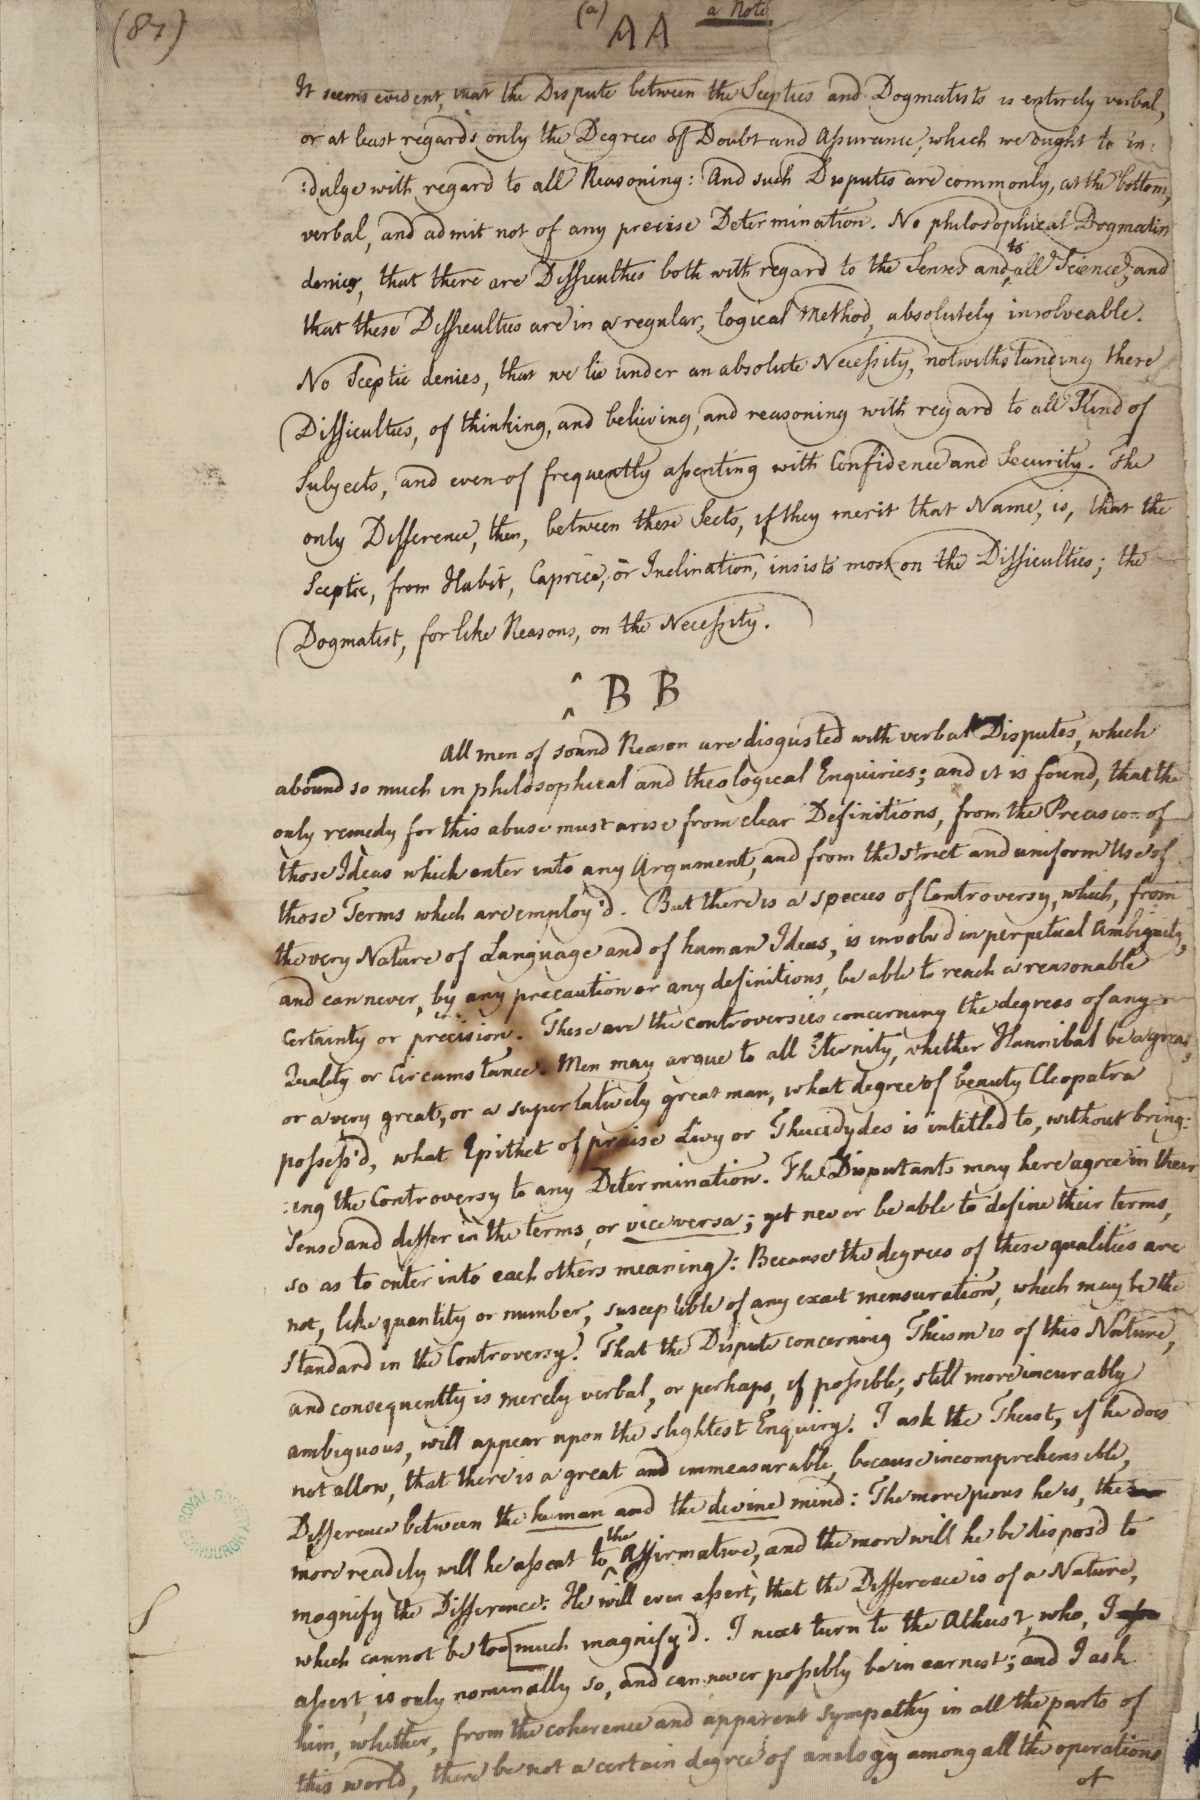 (87)
(a) AA a Note
It seems evident, that the Dispute between the Sceptics and Dogmatists is entirely verbal,
or at least regards only the Degrees of Doubt and Assurance, which we ought to in:
:dulge with regard to all Reasoning: And such Disputes are commonly, at the bottom,
verbal, and admit not of any precise Determination. No philosophical Dogmatist
denies, that there are Difficulties both with regard to the Senses and to all Science; and
that these Difficulties are in a regular, logical Method, absolutely insolveable.
No Sceptic denies, that we lie under an absolute Necessity, notwithstanding these
Difficulties, of thinking, and believing, and reasoning with regard to all Kind of
Subjects, and even of frequently assenting with Confidence and Security. The
only Difference, then, between these Sects, if they merit that Name, is, that the
Sceptic, from Habit, Caprice, or Inclination, insists most on the Difficulties; the
Dogmatist, for like Reasons, on the Necessity.
BB
All men of sound Reason are disgusted with verbal Disputes, which
abound so much in philosophical and theological Enquiries; and it is found, that the
only remedy for this abuse must arise from clear Definitions, from the Precision of
those Ideas which enter into any Argument, and from the strict and uniform Use of
those Terms which are employ'd. But there is a species of Controversy, which, from
the very Nature of Language and of human Ideas, is involv'd in perpetual Ambiguity,
and can never, by any precaution or any definitions, be able to reach a reasonable
Certainty or precision. These are the controversies concerning the degrees of any
Quality or Circumstance. Men may argue to all Eternity, whether Hannibal be a great,
or a very great, or a superlatively great man, what degree of Beauty Cleopatra
possess'd, what Epithet of praise Livy or Thucidydes is intitled to, without bring:
:ing the Controversy to any Determination. The Disputants may here agree in their
Sense and differ in the terms, or vice versa; yet never be able to define their terms,
so as to enter into each others meaning: Because the degrees of these qualities are
not, like quantity or number, susceptible of any exact mensuration, which may be the
Standard in the Controversy. That the Dispute concerning Theism is of this Nature,
and consequently is merely verbal, or perhaps, if possible, still more incurably
ambiguous, will appear upon the slightest Enquiry. I ask the Theist, if he does
not allow, that there is a great and immeasurable, because incomprehensible,
Difference between the human and the divine mind: The more pious he is, the
more readily will he assent to the Affirmative, and the more will he be dispos'd to
magnify the Difference: He will even assert, that the Difference is of a Nature,
which cannot be too much magnify'd. I next turn to the Atheist, who, I
assert, is only nominally so, and can never possibly be in earnest; and I ask
him, whether, from the coherence and apparent sympathy in all the parts of
this world, there be not a certain degree of analogy among all the operations
of
ROYAL SOCIETY
EDINBURGH